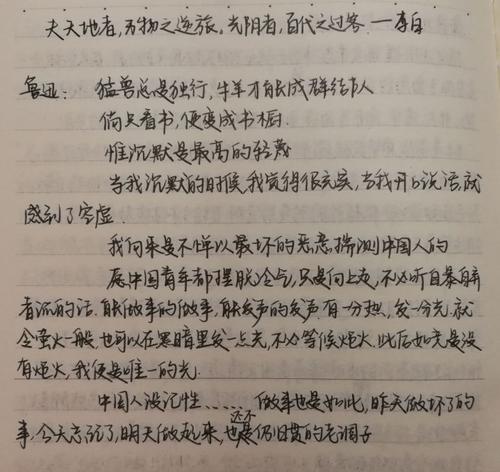 夫天地者，万物之逆旅。光阴者，百代之过客 — 李白
鲁迅：猛兽总是独行，牛羊才能成群结队
倘只看书，便变成书橱.
惟沉默是最高的轻蔑
当我沉默的时候，我觉得很充实，当我开口说话，就
感到了空虚
我向来是不惮以最坏的恶意揣测中国人的
愿中国青年都摆脱冷气，只是向上走，不必听自暴自弃
者流的话. 能做事的做事，能发声的发声. 有一分热，发一分光. 就
令萤火一般. 也可以在黑暗里发一点光，不必等候炬火. 此后如竟是没
有炬火，我便是唯一的光.
中国人没记性……做事也是如此，昨天做坏了的
事，今天忘记了，明天做起来，也还不是仍旧贯的老调子